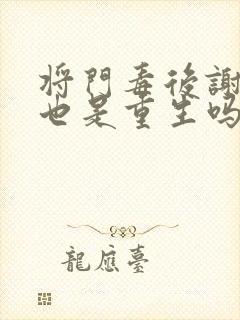 将門毒後謝
也是重生嗎
龍應臺